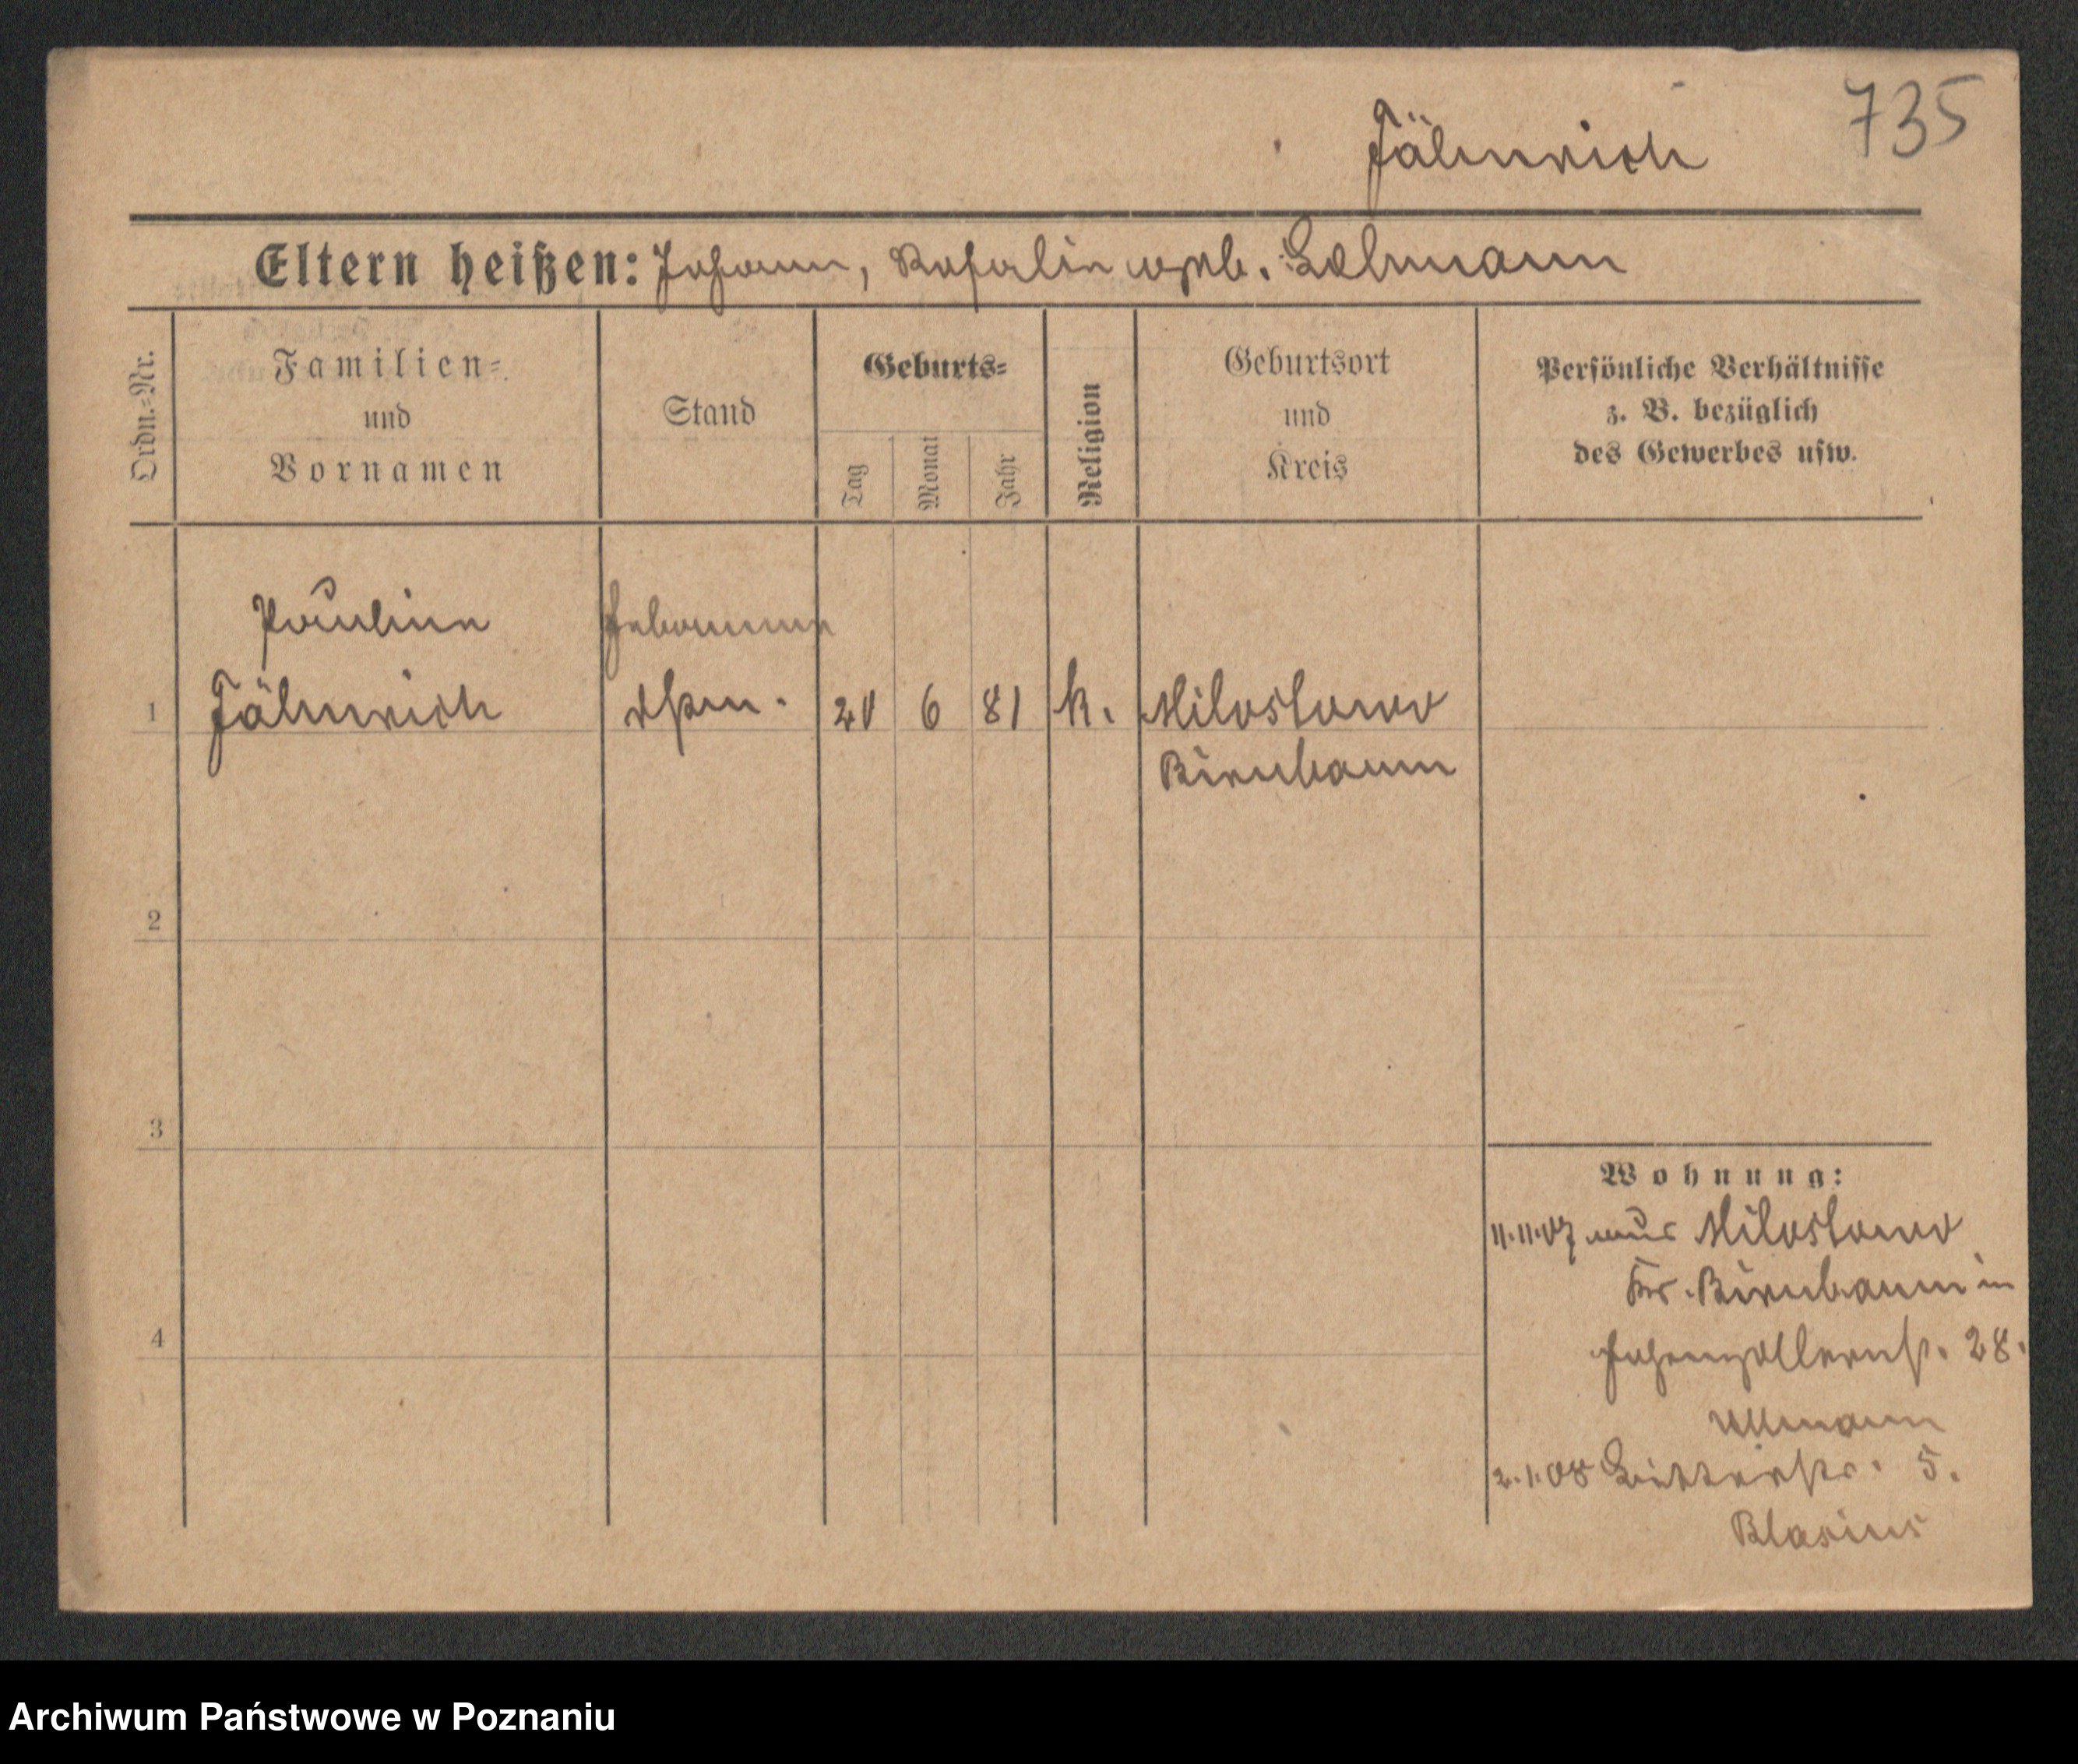 735
Jähnrich
Eltern heißen: Johann, Rosalie geb. Lehmann
Ordn.-Nr.
Familien-
und
Vornamen
Stand
Geburts-
Tag
Monat
Jahr
Religion
Geburtsort
und
Kreis
Persönliche Verhältnisse
z. B. bezüglich
des Gewerbes usw.
Pauline Hebamme
1 Jähnrich 6 81 k. Milostowo
Birnbaum
2
3
4
Wohnung:
11.11.07 aus Milostowo
Krs. Birnbaum in
Hohenzollernstr. 28.
Ullmann
2.1.08 Ritterstr. 5.
Blasius
Archiwum Państwowe w Poznaniu